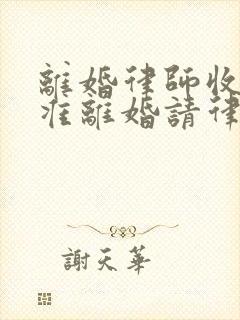 離婚律師收
准離婚請律
謝天華